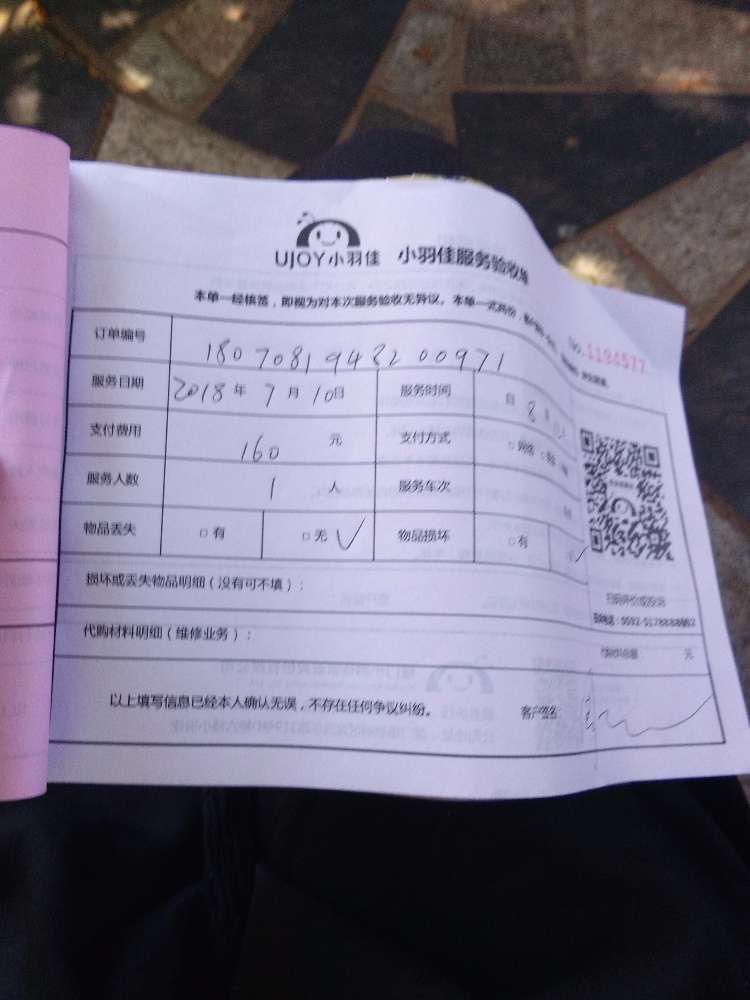 UJOY小羽佳 小羽佳服务验收单
本单一经核签，即视为对本次服务验收无异议。本单一式两份，
No. 1184577
订单编号 18070819432 00971
服务日期 2018年 7月 10日 服务时间 自 8
支付费用 160 元 支付方式
服务人数 1 人 服务车次
物品丢失 □有 □无 √ 物品损坏 □有
损坏或丢失物品明细（没有可不填）：
代购材料明细（维修业务）： 元
以上填写信息已经本人确认无误，不存在任何争议纠纷。 客户签名: